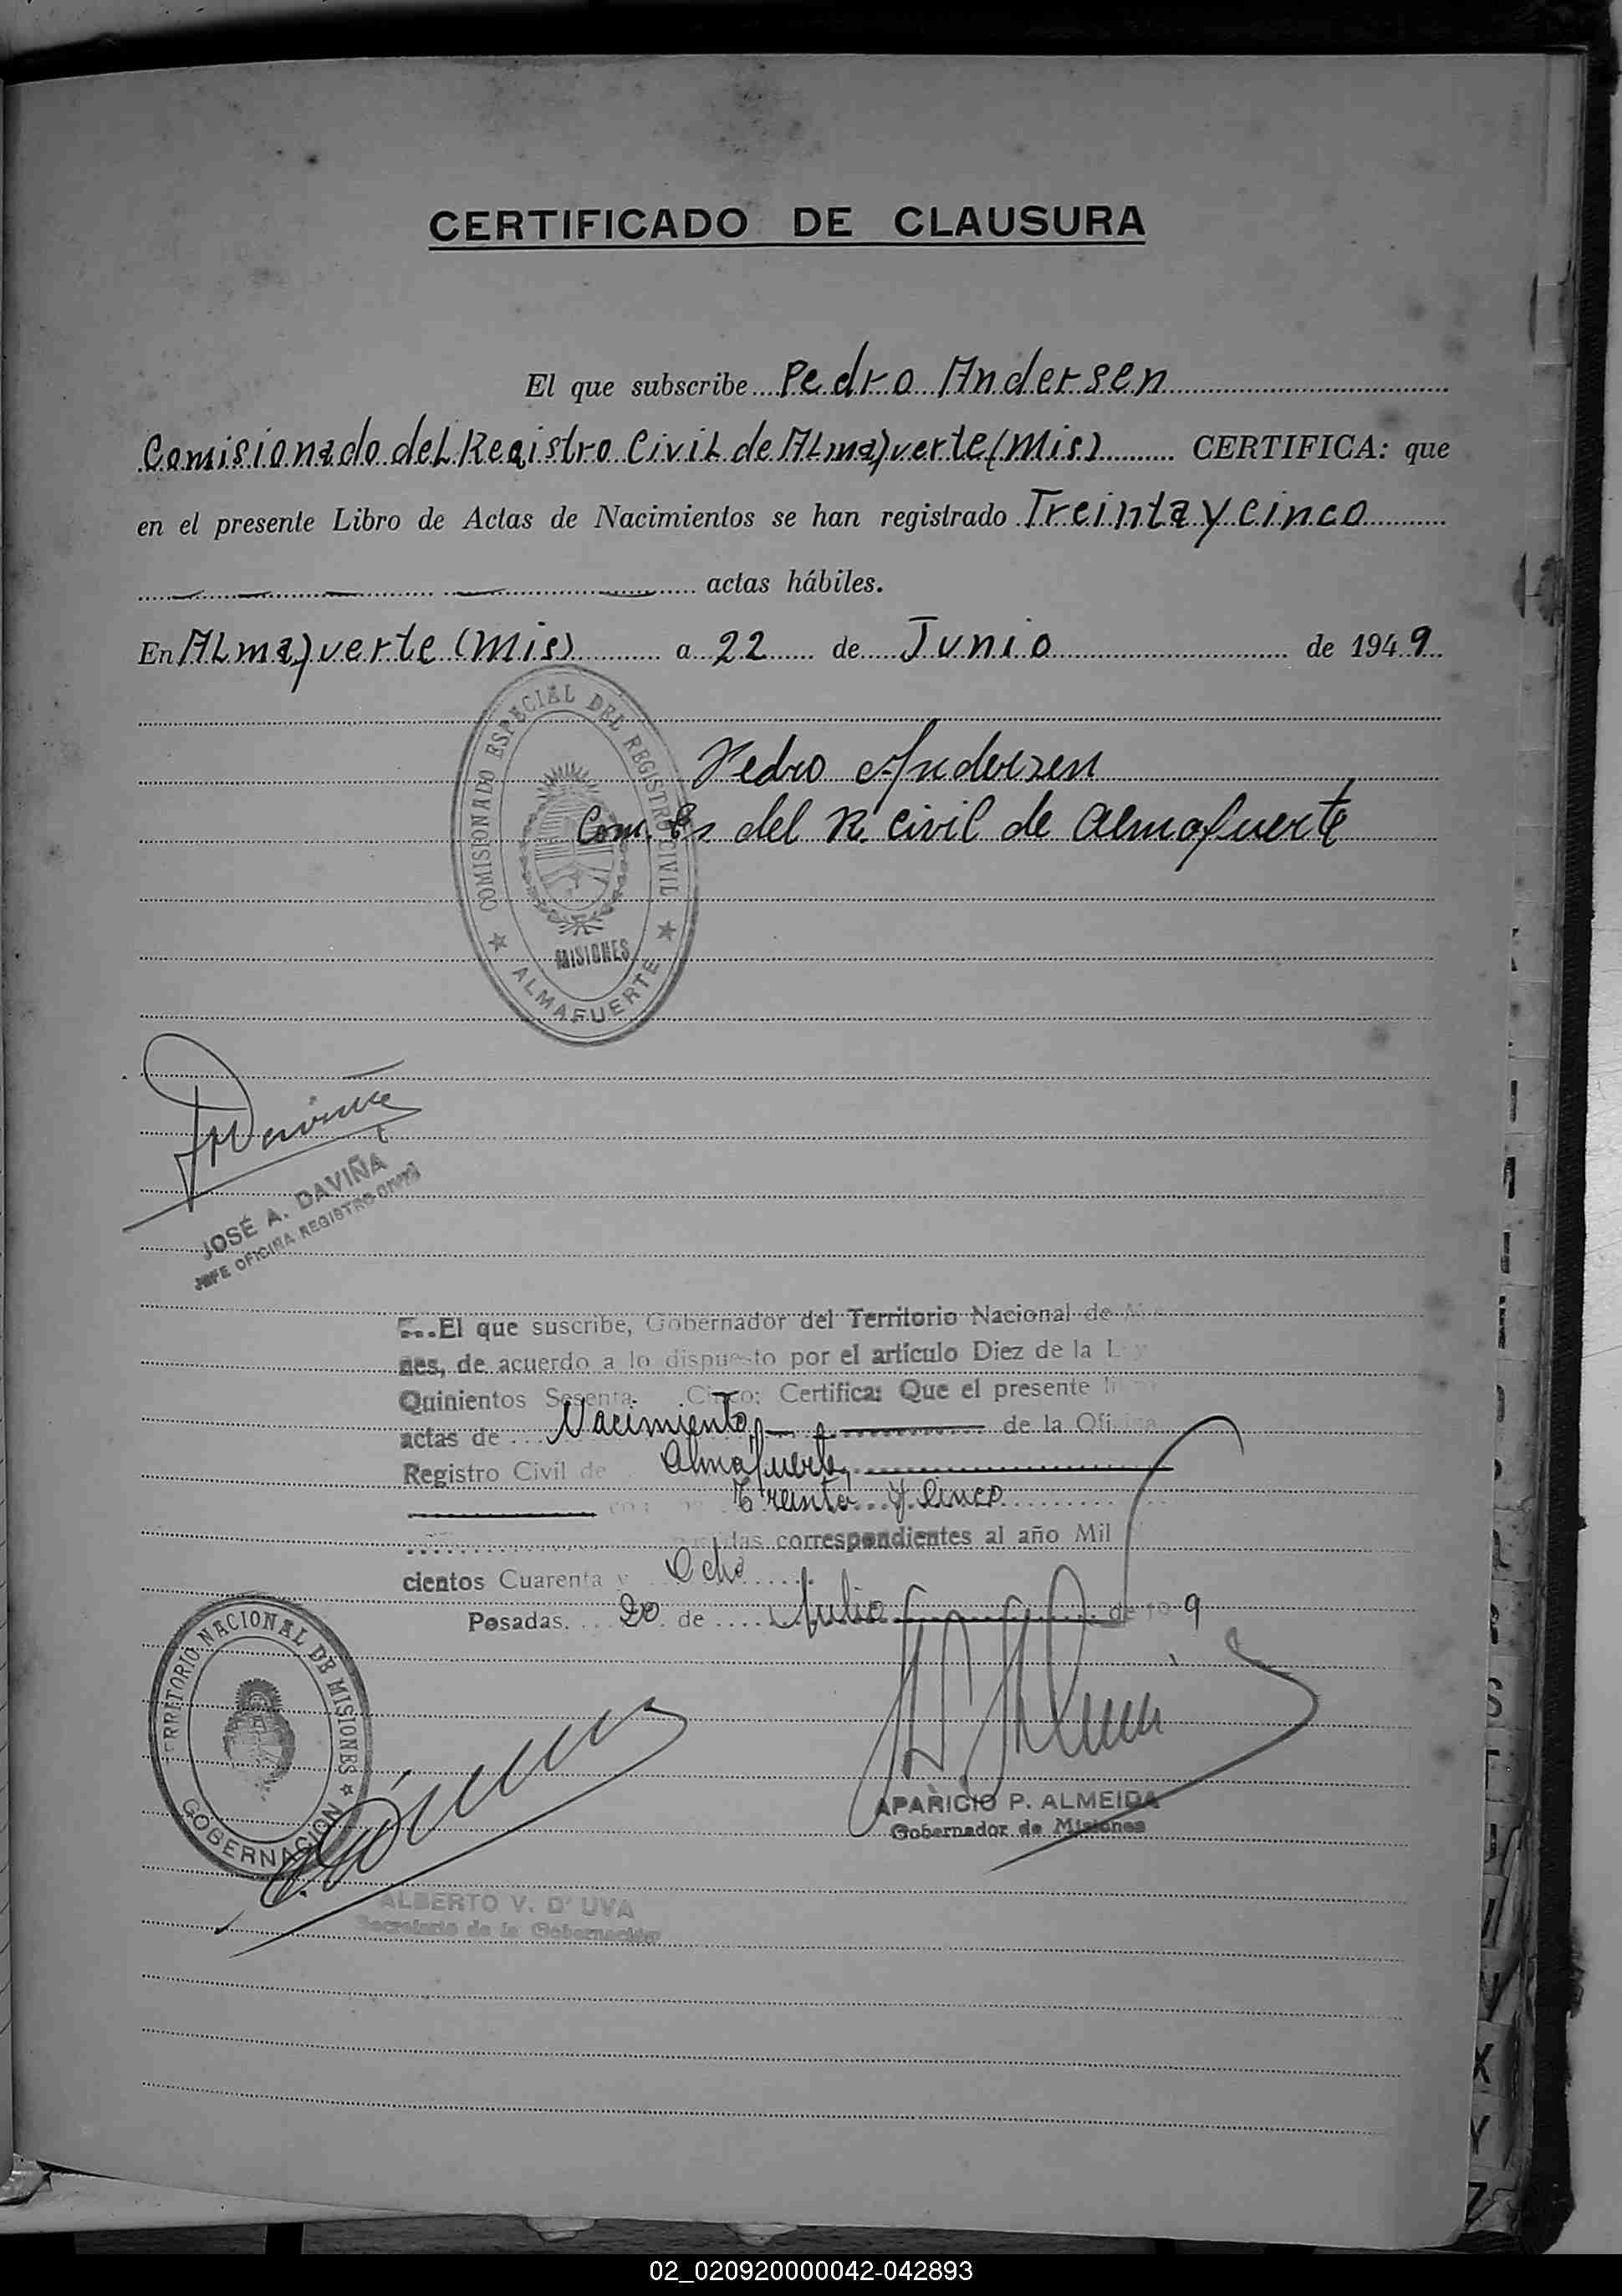 CERTIFICADO DE CLAUSURA
El que subscribe Pedro Andersen
Comisionado del Registro Civil de Almafuerte (Mis) CERTIFICA: que
en el presente Libro de Actas de Nacimientos se han registrado Treinta y cinco
actas hábiles.
En Almafuerte (Mis) a 22 de Junio de 1949
COMISIONADO ESPECIAL DEL REGISTRO CIVIL
MISIONES
ALMAFUERTE
Pedro Andersen
Com. Es del R. civil de Almafuerte
JOSÉ A. DAVIÑA
JEFE OFICINA REGISTRO CIVIL
El que suscribe, Gobernador del Territorio Nacional de
nes, de acuerdo a lo dispuesto por el artículo Diez de la
Quinientos Sesenta Cinco: Certifica: Que el presente
actas de Nacimiento de la Oficina
Registro Civil de Almafuerte,
Treinta y Cinco
correspondientes al año Mil
cientos Cuarenta y Ocho
Posadas. 20 de Julio de 9
TERRITORIO NACIONAL DE MISIONES
GOBERNACION
APARICIO P. ALMEIDA
Gobernador de Misiones
ALBERTO V. D' UVA
Secretario de la Gobernación
S
T
X
Y
Z
02_020920000042-042893